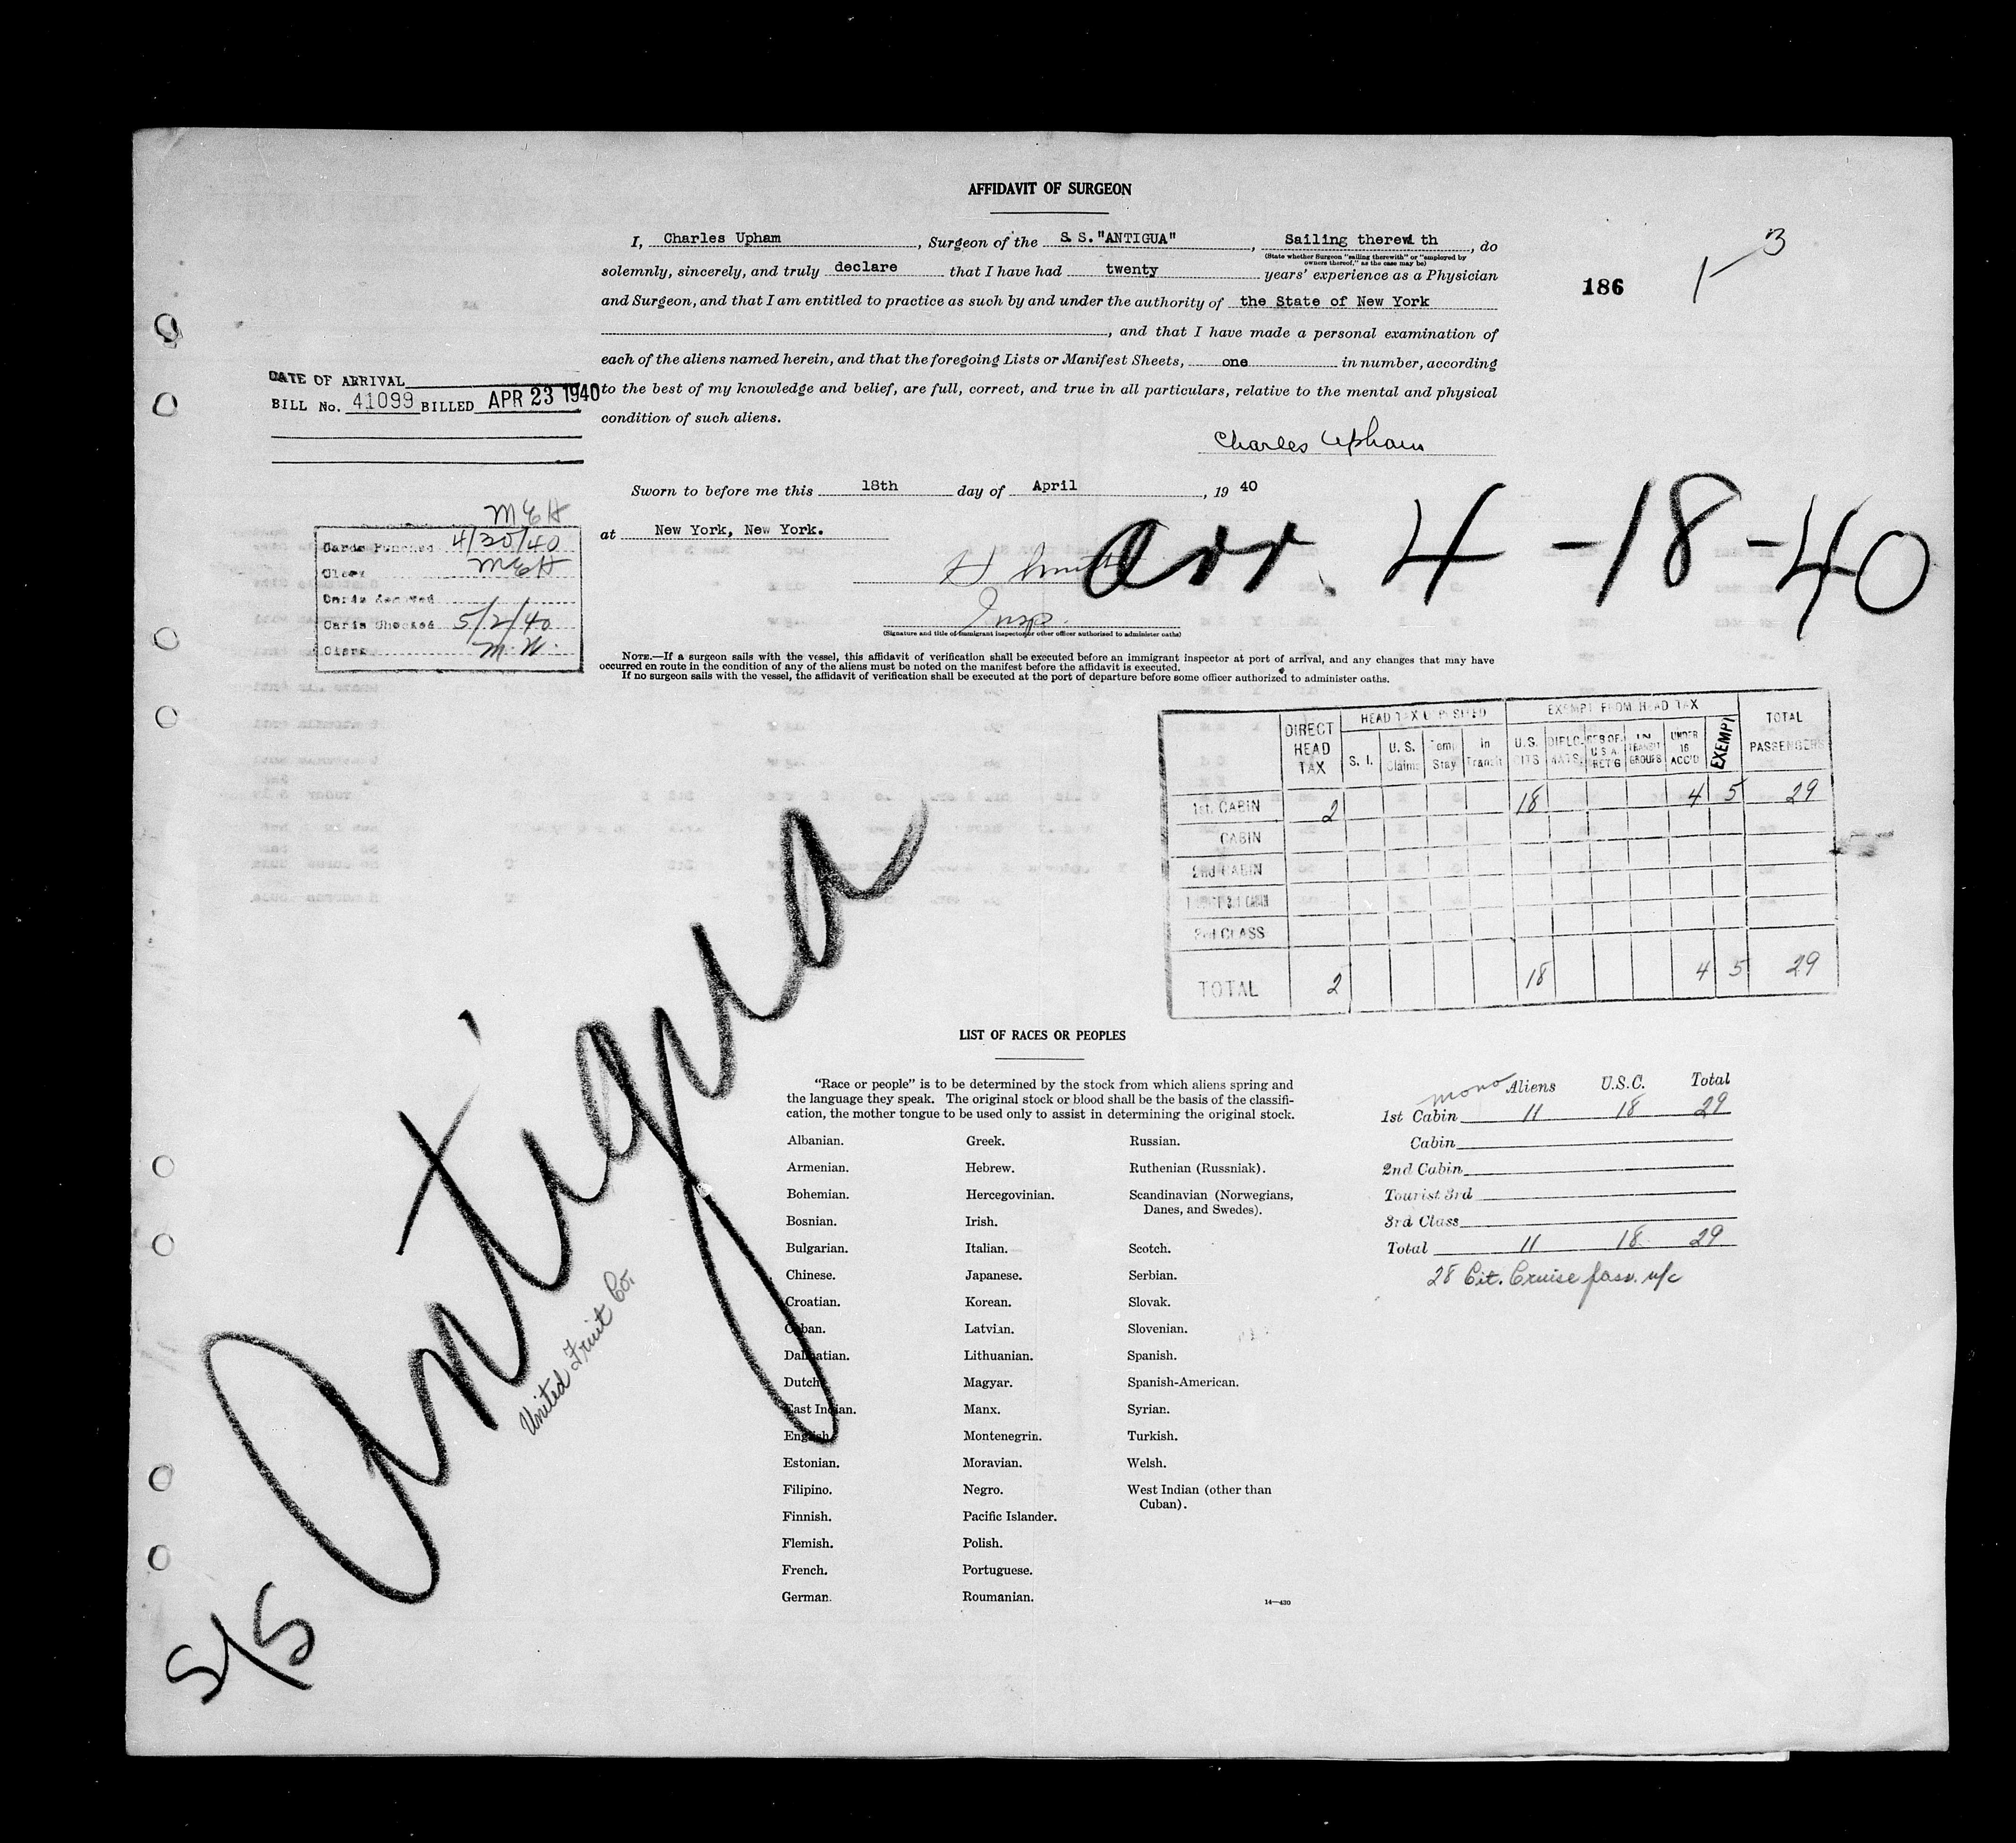 AFFIDAVIT OF SURGEON
I, Charles Upham, Surgeon of the S.S."ANTIGUA", Sailing therewith, do
(State whether Surgeon "sailing therewith" or "employed by
owners thereof," as the case may be)
solemnly, sincerely, and truly declare that I have had twenty years' experience as a Physician
and Surgeon, and that I am entitled to practice as such by and under the authority of the State of New York
, and that I have made a personal examination of
each of the aliens named herein, and that the foregoing Lists or Manifest Sheets, one in number, according
to the best of my knowledge and belief, are full, correct, and true in all particulars, relative to the mental and physical
condition of such aliens.
Charles Upham
186
1-3
DATE OF ARRIVAL
BILL No. 41099 BILLED APR 23 1940
Sworn to before me this 18th day of April, 19 40
at New York, New York.
H Smith
Insp.
(Signature and title of immigrant inspector or other officer authorized to administer oaths)
arr. 4-18-40
MEH
Cards Punched 4/30/40
Clerk MEH
Cards
Cards Checked 5/2/40
Clerk M.W.
NOTE.—If a surgeon sails with the vessel, this affidavit of verification shall be executed before an immigrant inspector at port of arrival, and any changes that may have
occurred en route in the condition of any of the aliens must be noted on the manifest before the affidavit is executed.
If no surgeon sails with the vessel, the affidavit of verification shall be executed at the port of departure before some officer authorized to administer oaths.
DIRECT HEAD TAX HEAD TAX DEPOSITED EXEMPT FROM HEAD TAX TOTAL PASSENGERS
S. I. U. S. Claims Temp Stay In Transit U.S. CITS DIPLO-MATS. RES OF U S A RET'G IN TRANSIT GROUPS UNDER 16 ACC'D EXEMPT
1st. CABIN 2 18 4 5 29
CABIN
2nd CABIN
3rd CLASS
TOTAL 2 18 4 5 29
LIST OF RACES OR PEOPLES
"Race or people" is to be determined by the stock from which aliens spring and
the language they speak. The original stock or blood shall be the basis of the classifi-
cation, the mother tongue to be used only to assist in determining the original stock.
Albanian. Greek. Russian.
Armenian. Hebrew. Ruthenian (Russniak).
Bohemian. Hercegovinian. Scandinavian (Norwegians,
Danes, and Swedes).
Bosnian. Irish.
Bulgarian. Italian. Scotch.
Chinese. Japanese. Serbian.
Croatian. Korean. Slovak.
Cuban. Latvian. Slovenian.
Dalmatian. Lithuanian. Spanish.
Dutch. Magyar. Spanish-American.
East Indian. Manx. Syrian.
English. Montenegrin. Turkish.
Estonian. Moravian. Welsh.
Filipino. Negro. West Indian (other than
Cuban).
Finnish. Pacific Islander.
Flemish. Polish.
French. Portuguese.
German. Roumanian.
14—430
mono Aliens U.S.C. Total
1st Cabin 11 18 29
Cabin
2nd Cabin
Tourist 3rd
3rd Class
Total 11 18 29
28 Cit. Cruise pass. n/c
S/S Antigua
United Fruit Co.